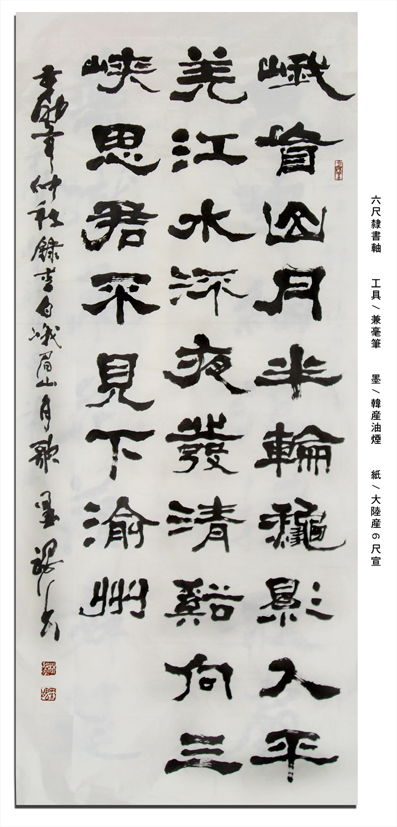 六尺隸書軸 工具/兼毫筆 墨/韓産油煙 紙/大陸産6尺宣
峨眉山月半輪龝影入平
羌江水流夜發清谿向三
峽思君不見下渝州
年仲秋錄李白峨眉山月歌